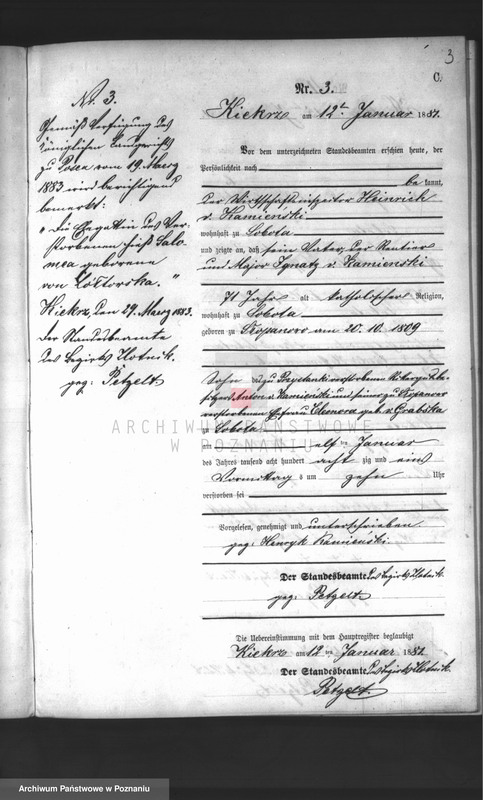 3
C.
Nr. 3.
Kiekrz am 12ten Januar 1881.
Vor dem unterzeichneten Standesbeamten erschien heute, der
Persönlichkeit nach
bekannt,
der Wirthschaftsinspector Heinrich
v. Kamieński
wohnhaft zu Sobota
und zeigte an, daß sein Vater, der Rentier
und Major Ignatz v. Kamienski
71 Jahr alt katholischer Religion,
wohnhaft zu Sobota
geboren zu am 20. 10. 1809
Sohn des zu verstorbenen Rittergutsbe-
sitzers Anton v. Kamieński und seiner zu
verstorbenen Ehefrau Eleonora geb. v. Grabska
zu Sobota
am elf ten Januar
des Jahres tausend acht hundert acht zig und eins
Vormittags um zehn Uhr
verstorben sei
Vorgelesen, genehmigt und unterschrieben
gez: Henryk Kamieński
Der Standesbeamte des Bezirks Zlotnik.
gez: Petzelt
Die Uebereinstimmung mit dem Hauptregister beglaubigt
Kiekrz am 12 ten Januar 1881.
Der Standesbeamte des Bezirks Zlotnik.
Petzelt
Nr. 3.
Gemäß Verfügung des
Königlichen Landgerichts
zu Posen vom 19. Maerz
1883 wird berichtigend
bemerkt:
"die Ehegattin des Ver-
storbenen hieß Salo-
mea geborene
von "
Kiekrz, den 29. Maerz 1883.
Der Standesbeamte
des Bezirks Zlotnik.
gez: Petzelt
ARCHIWUM PAŃSTWOWE
W POZNANIU
Archiwum Państwowe w Poznaniu